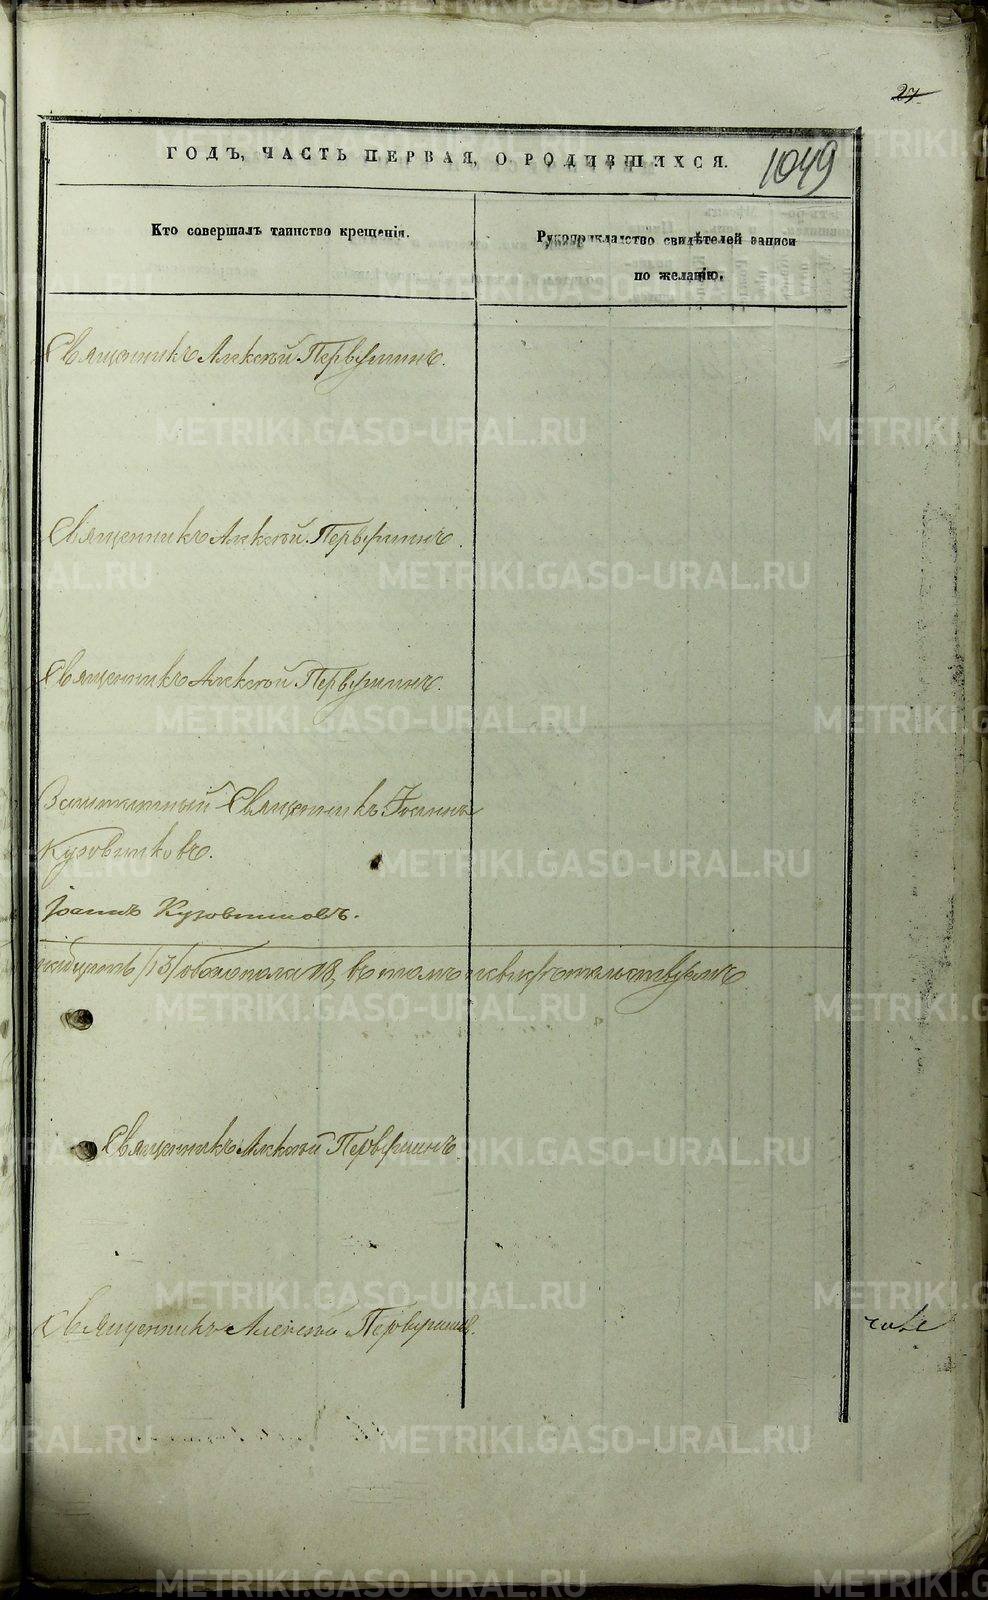 27.
ГОДЪ, ЧАСТЬ ПЕРВАЯ, О РОДИВШИХСЯ.
1049
Кто совершалъ таинство крещенія.
Рукоприкладство свидѣтелей записи
по желанію.
Священникъ Алексѣй Первушинъ.
Священникъ Алексѣй Первушинъ.
Священникъ Алексѣй Первушинъ.
Священникъ Іоаннъ
Кузовниковъ.
Іоаннъ Кузовниковъ.
/13/ обоего пола 18, въ томъ и свидѣтельствуемъ
Священникъ Алексѣй Первушинъ.
Священникъ Алексѣй Первушинъ.
METRIKI.GASO-URAL.RU